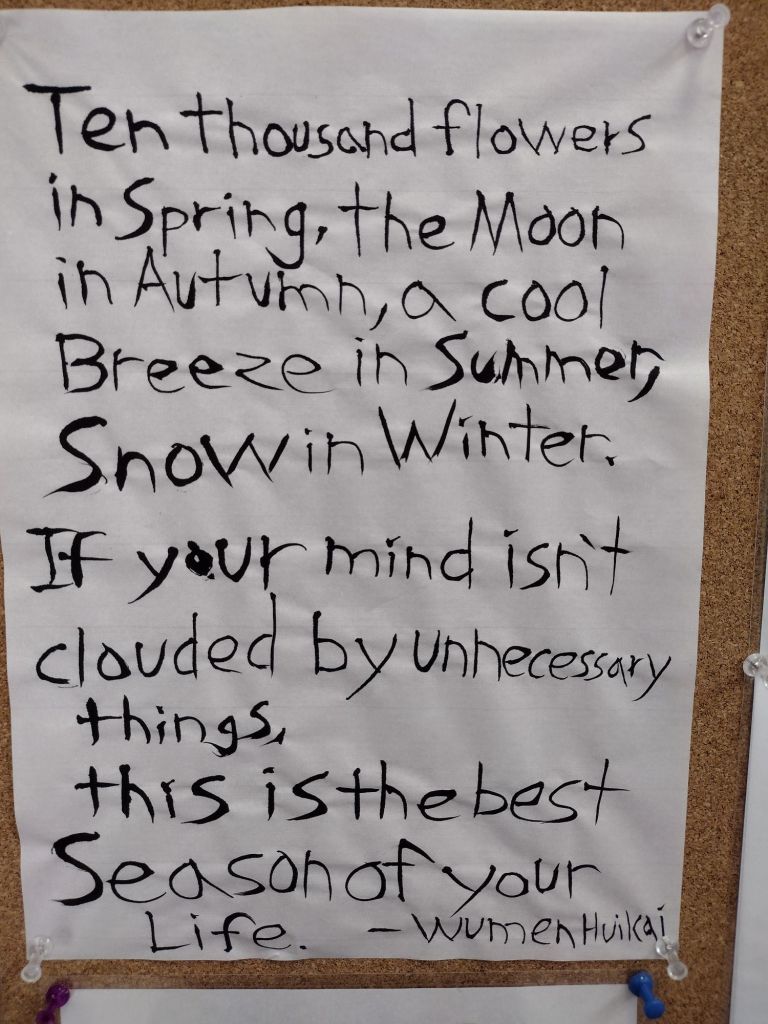 Ten thousand flowers
in Spring, the Moon
in Autumn, a cool
Breeze in Summer,
Snow in Winter.
If your mind isn't
clouded by unnecessary
things,
this is the best
Season of your
Life. - Wumen Huikai